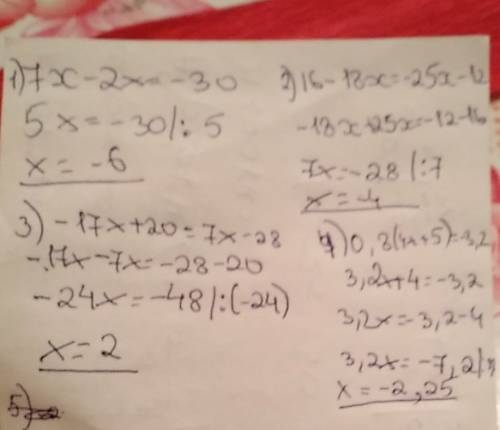 1) 7x - 2x = -30
5x = -30 |: 5
x = -6
2) 16 - 18x = -25x - 12
-18x + 25x = -12 - 16
7x = -28 |: 7
x = -4
3) -17x + 20 = 7x - 28
-17x - 7x = -28 - 20
-24x = -48 |: (-24)
x = 2
4) 0,8(4x+5) = -3,2
3,2x + 4 = -3,2
3,2x = -3,2 - 4
3,2x = -7,2 |:
x = -2,25
5)